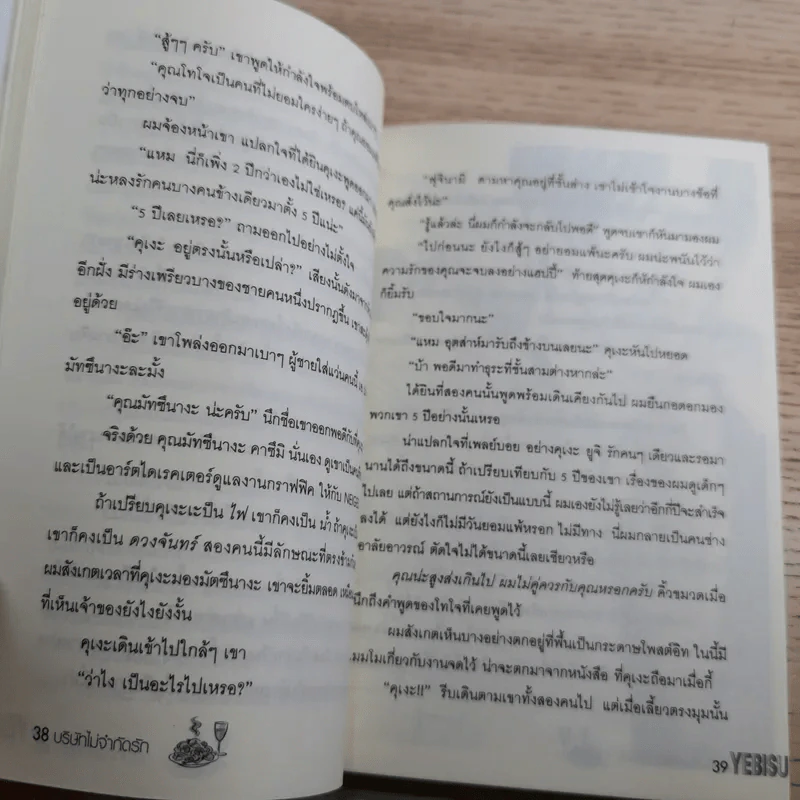 "สู้ๆๆ ครับ" เขาพูดให้กำลังใจพร้อม
"คุณโทโจเป็นคนที่ไม่ยอมใครง่ายๆ ถ้า
ว่าทุกอย่างจบ"
ผมจ้องหน้าเขา แปลกใจที่ได้ยินคุเงะพูดออกมา
"แหม นี่ก็เพิ่ง 2 ปีกว่าเองไม่ใช่เหรอ?
น่ะหลงรักคนบางคนข้างเดียวมาตั้ง 5 ปีแน่ะ"
"5 ปีเลยเหรอ?" ถามออกไปอย่างไม่ตั้งใจ
"คุเงะ อยู่ตรงนั้นหรือเปล่า?" เสียงนั้นดังมาจาก
อีกฝั่ง มีร่างเพรียวบางของชายคนหนึ่งปรากฏขึ้น
อยู่ด้วย
"อ๊ะ" เขาโพล่งออกมาเบาๆ ผู้ชายใส่แว่นคนนี้
มัทซึนางะละมั้ง
"คุณมัทซึนางะ น่ะครับ" นึกชื่อเขาออกพอดีกับที่
จริงด้วย คุณมัทซึนางะ คาซึมิ นั่นเอง ดูเขาเป็น
และเป็นอาร์ตไดเรคเตอร์ดูแลงานกราฟฟิค ให้กับ
ถ้าเปรียบคุเงะเป็น ไฟ เขาก็คงเป็น น้ำ ถ้าคุเงะ
เขาก็คงเป็น ดวงจันทร์ สองคนนี้มีลักษณะที่ตรงข้าม
ผมสังเกตเวลาที่คุเงะมองมัตซึนางะ เขาจะยิ้มตลอด
ที่เห็นเจ้าของยังไงยังงั้น
คุเงะเดินเข้าไปใกล้ๆ เขา
"ว่าไง เป็นอะไรไปเหรอ?"
38 บริษัทไม่จำกัดรัก
"ฟุจินามิ ตามหาคุณอยู่ที่ชั้นล่าง เขาไม่เข้าใจงานบางข้อที่
คุณสั่งไว้น่ะ"
"รู้แล้วล่ะ นี่ผมก็กำลังจะกลับไปพอดี" พูดจบเขาก็หันมามองผม
"ไปก่อนนะ ยังไงก็สู้ๆ อย่ายอมแพ้นะครับ ผมน่ะพนันไว้ว่า
ความรักของคุณจะจบลงอย่างแฮปปี้" ท้ายสุดคุเงะก็ให้กำลังใจ ผมเอง
ก็ยิ้มรับ
"ขอบใจมากนะ"
"แหม อุตส่าห์มารับถึงข้างบนเลยนะ" คุเงะหันไปหยอด
"บ้า พอดีมาทำธุระที่ชั้นสามต่างหากล่ะ"
ได้ยินที่สองคนนั้นพูดพร้อมเดินเคียงกันไป ผมยืนกอดอกมอง
พวกเขา 5 ปีอย่างนั้นเหรอ
น่าแปลกใจที่เพลย์บอย อย่างคุเงะ ยูจิ รักคนๆ เดียวและรอมา
นานได้ถึงขนาดนี้ ถ้าเปรียบเทียบกับ 5 ปีของเขา เรื่องของผมดูเด็กๆ
ไปเลย แต่ถ้าสถานการณ์ยังเป็นแบบนี้ ผมเองยังไม่รู้เลยว่าอีกกี่ปีจะสำเร็จ
ลงได้ แต่ยังไงก็ไม่มีวันยอมแพ้หรอก ไม่มีทาง นี่ผมกลายเป็นคนช่าง
อาลัยอาวรณ์ ตัดใจไม่ได้ขนาดนี้เลยเชียวหรือ
คุณน่ะสูงส่งเกินไป ผมไม่คู่ควรกับคุณหรอกครับ คิ้วขมวดเมื่อ
นึกถึงคำพูดของโทโจที่เคยพูดไว้
ผมสังเกตเห็นบางอย่างตกอยู่ที่พื้นเป็นกระดาษโพสต์อิท ในนี้มี
เมมโมเกี่ยวกับงานจดไว้ น่าจะตกมาจากหนังสือ ที่คุเงะถือมาเมื่อกี้
"คุเงะ!!" รีบเดินตามเขาทั้งสองคนไป แต่เมื่อเลี้ยวตรงมุมนั้น
39 YEBISU